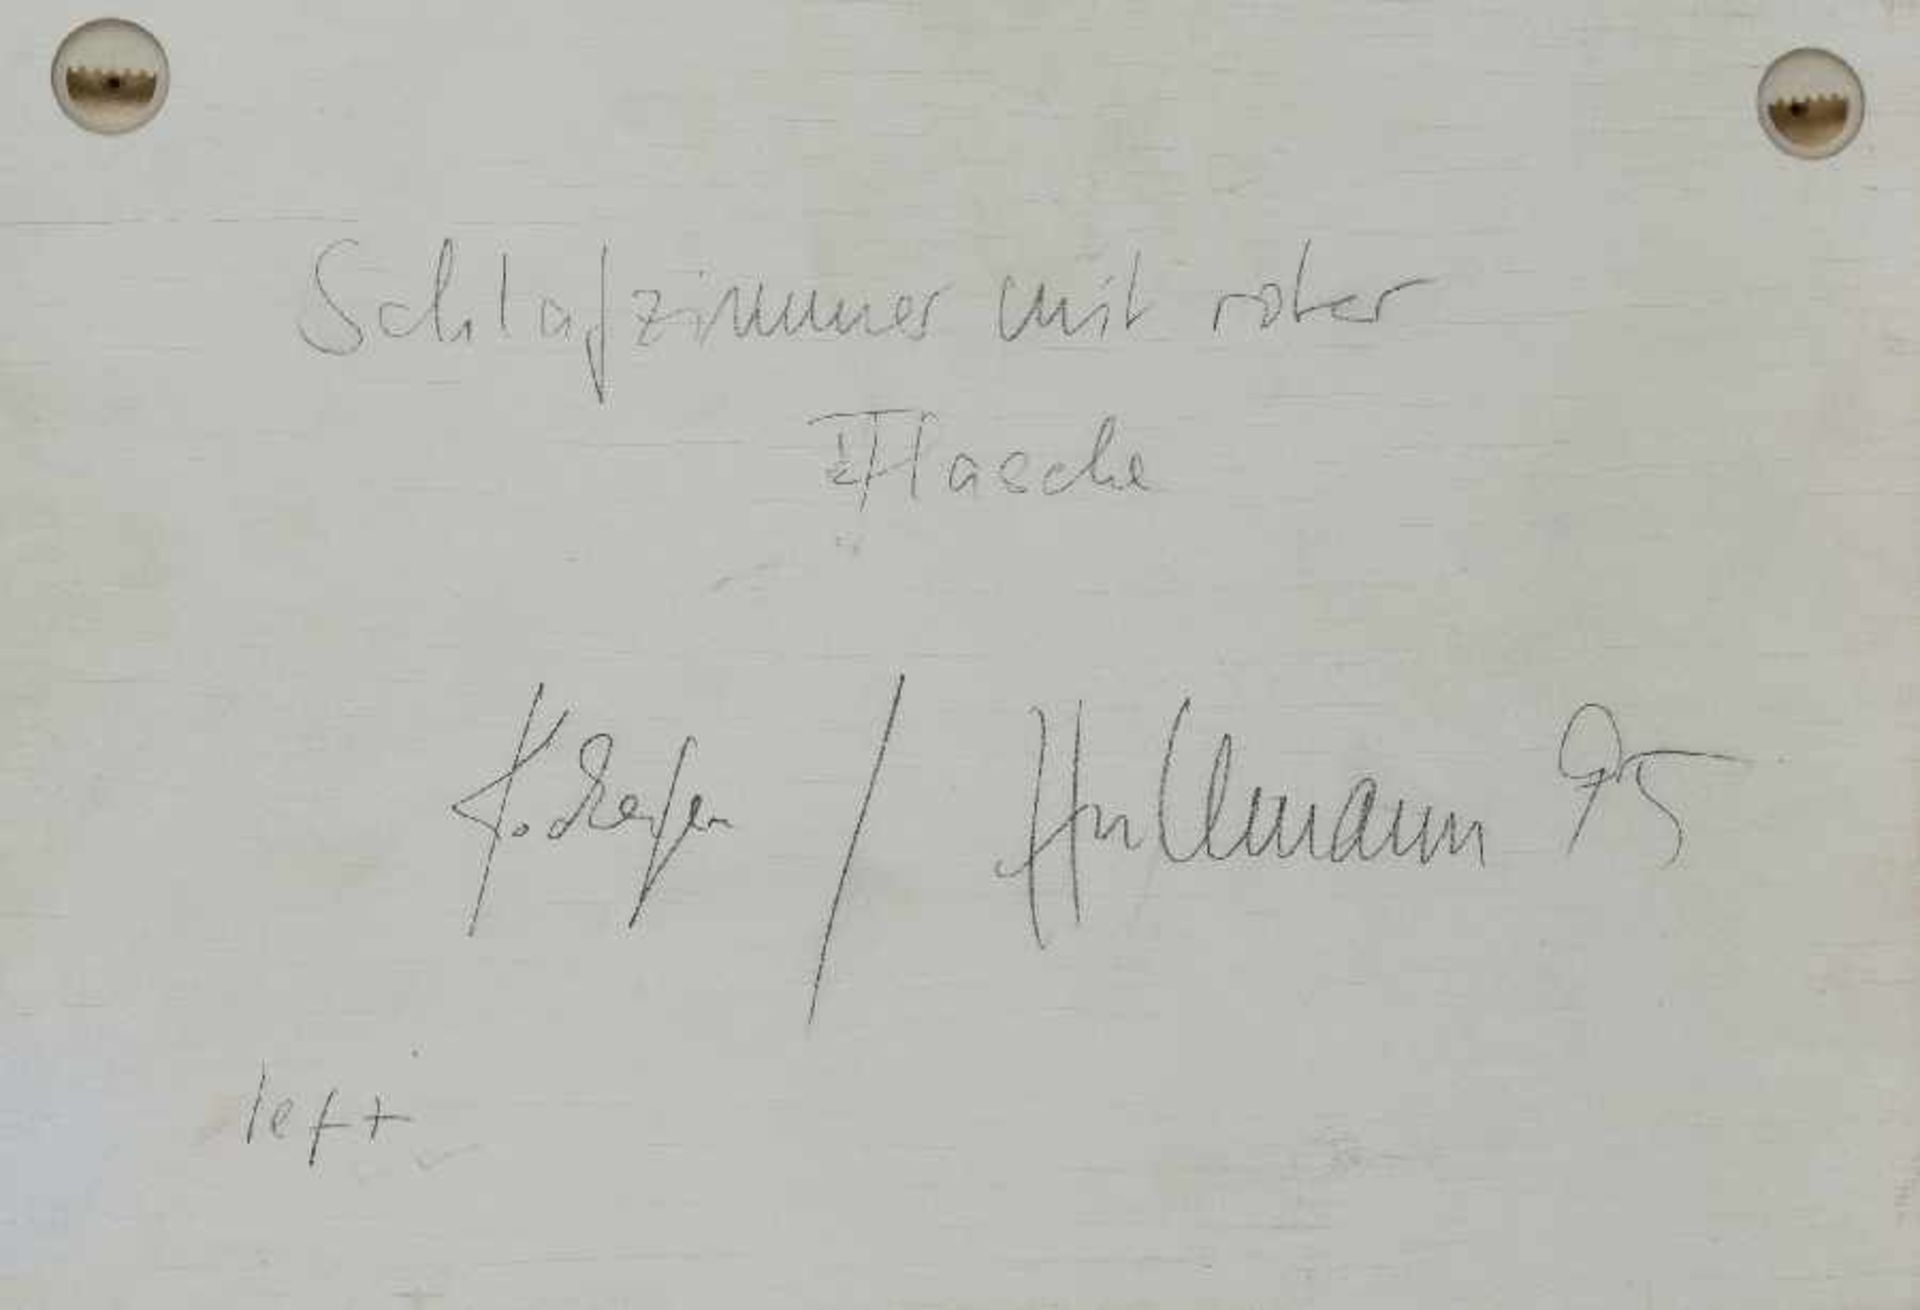 Schlafzimmer mit roter
Flasche
/ Hullmann 95
left